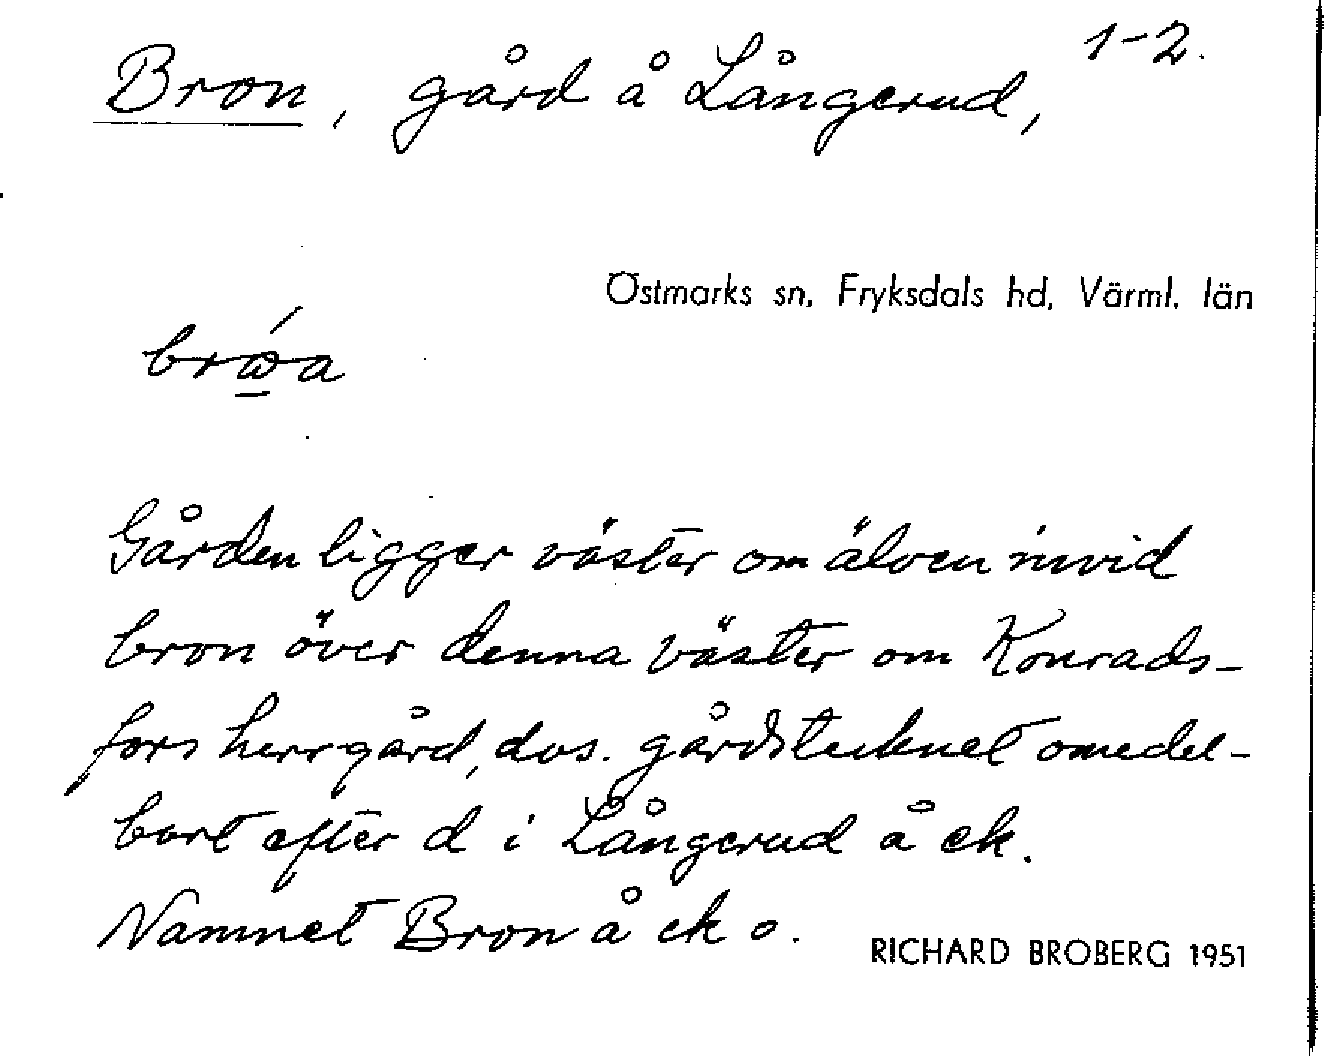 1-2.
Bron, gård å Långerud,
Östmarks sn, Fryksdals hd, Värml. län
Gården ligger väster om älven invid
bron över denna väster om Konrads-
fors herrgård, dvs. gårdstecknet omedel-
bart efter d i Långerud å ek.
Namnet Bron å ek o.
RICHARD BROBERG 1951